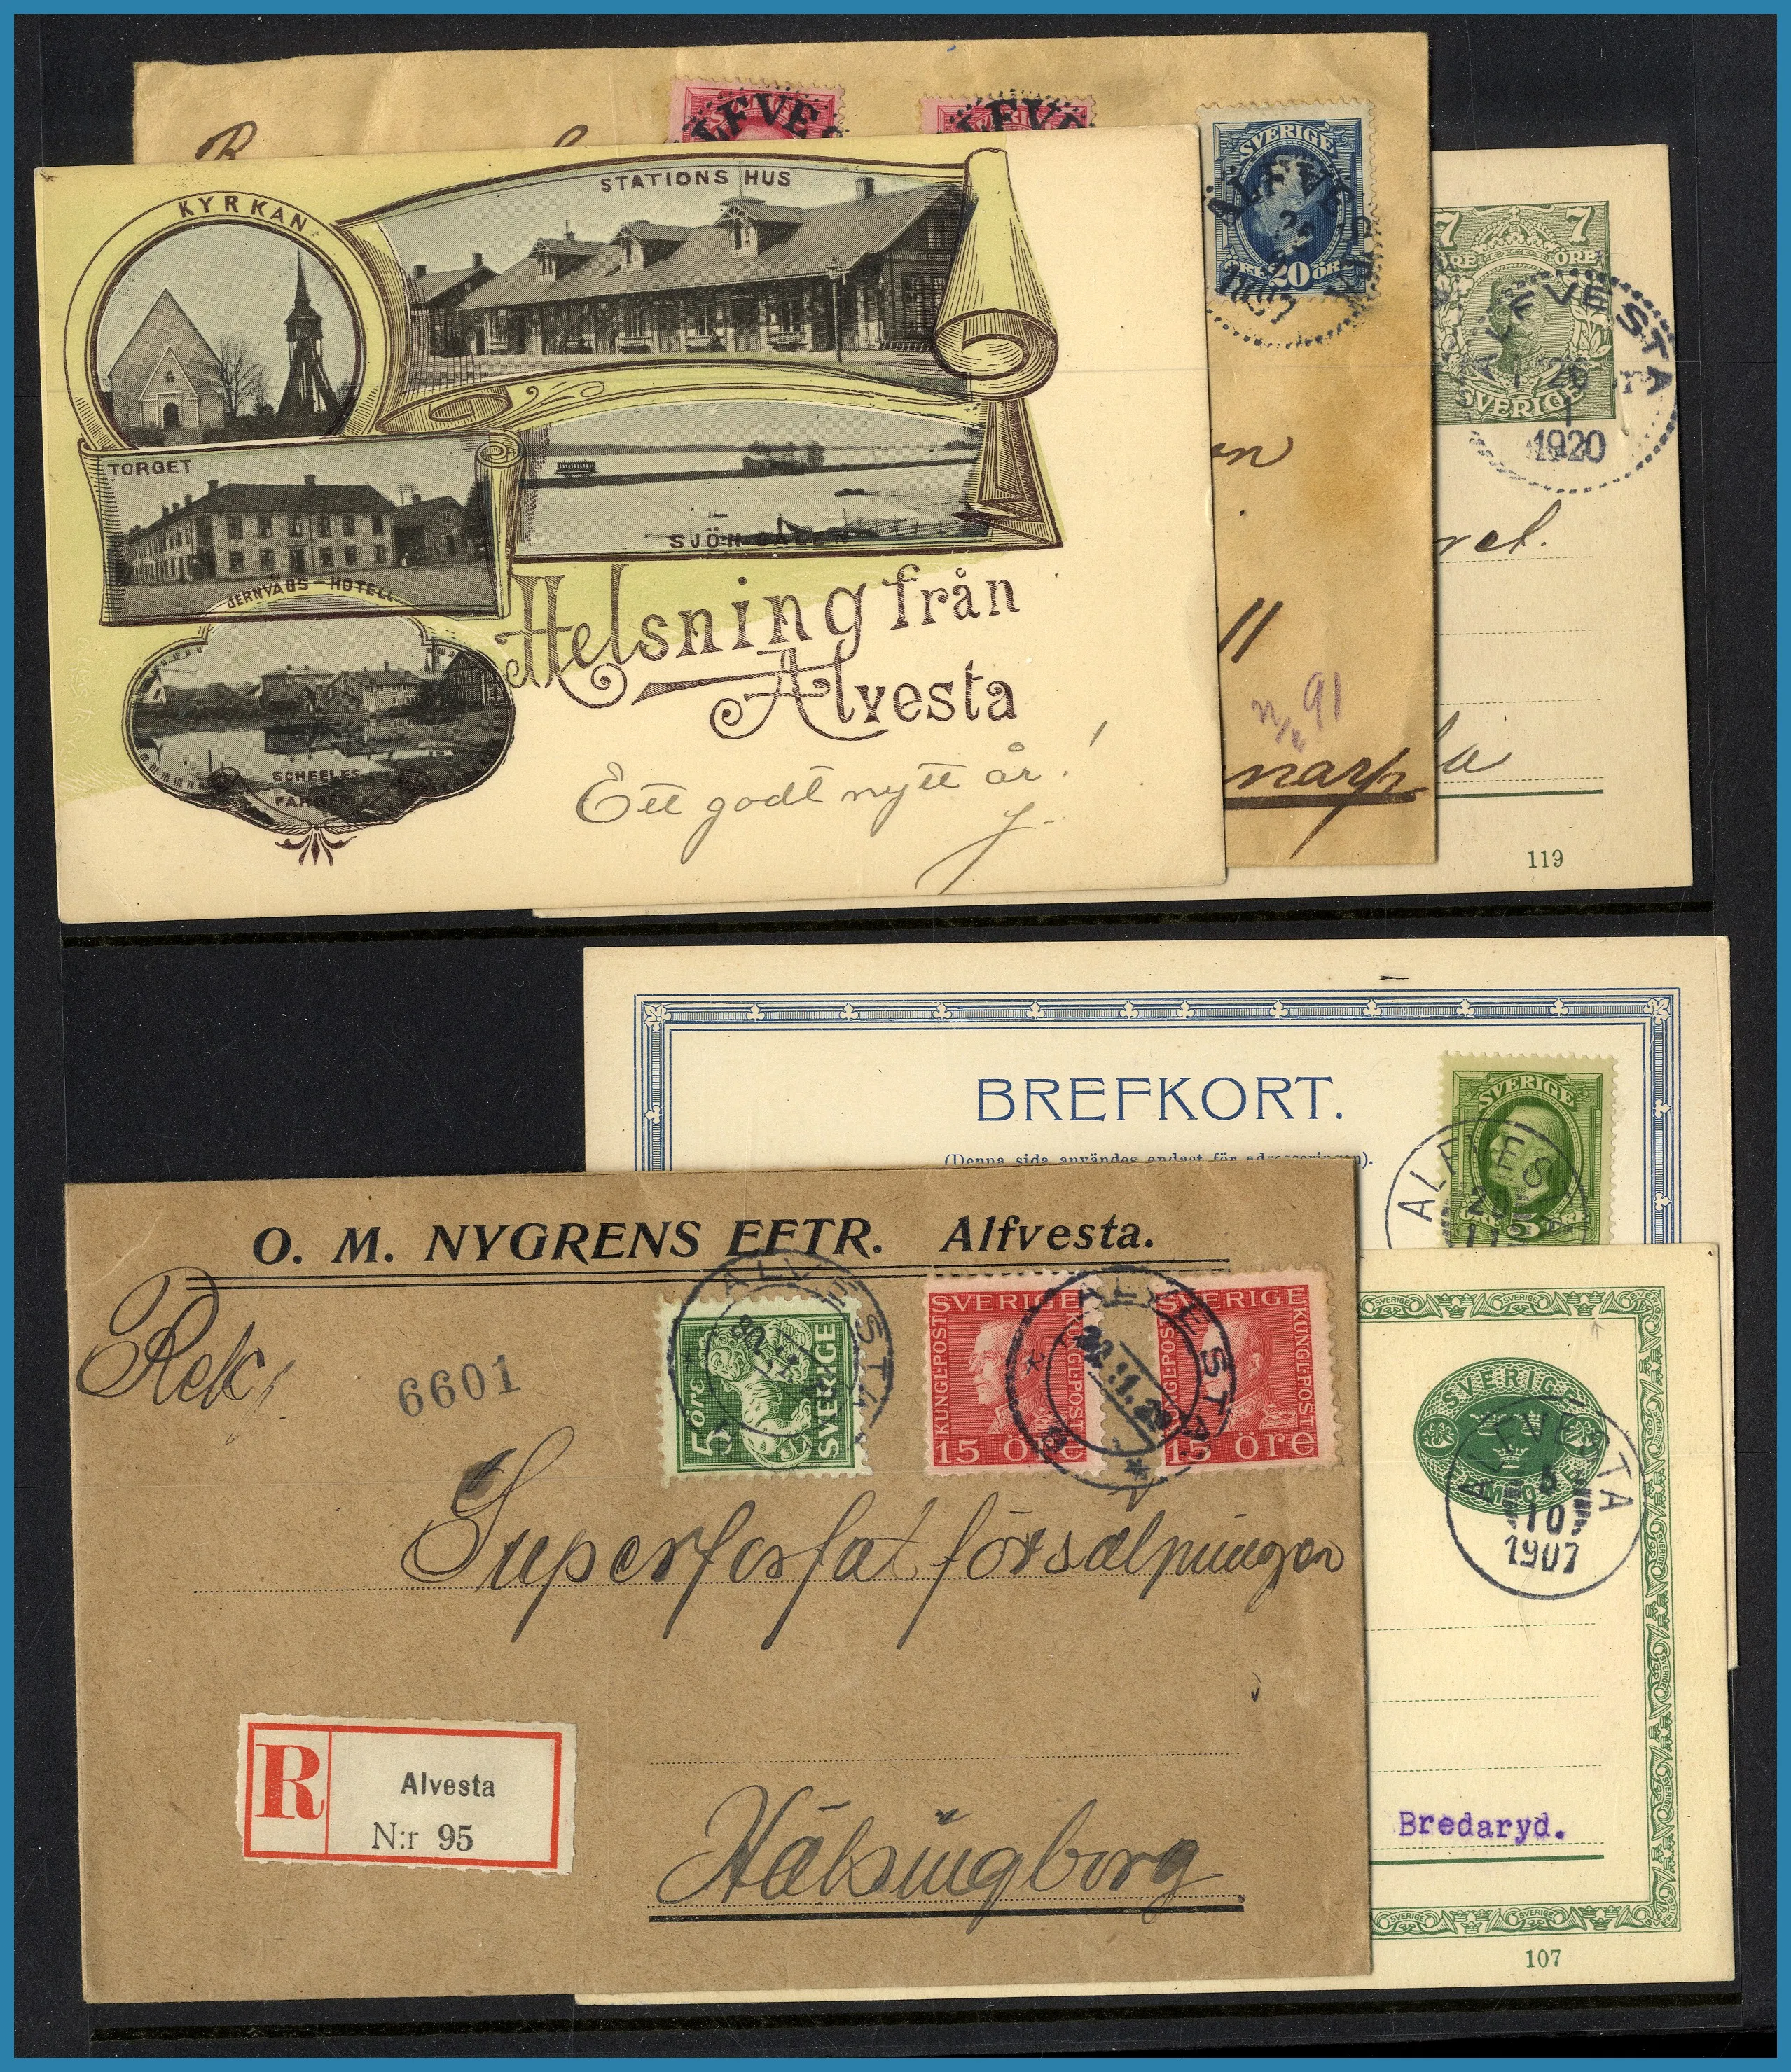 KYRKAN
STATIONS HUS
TORGET
JERNVÄGS-HOTELL
SJÖN SALEN
SCHEELES
Helsning från
Alvesta
Ett godt nytt år!
SVERIGE
ÖRE 20 ÖRE
7 7
ÖRE ÖRE
SVERIGE
ALFVESTA
26
1
1920
n
91
119
BREFKORT.
(Denna sida användes endast för adresseringen).
SVERIGE
ÖRE 5 ÖRE
ALFVES
O. M. NYGRENS EFTR. Alfvesta.
Rek.
6601
5 ÖRE SVERIGE
ALVESTA
SVERIGE
KUNGL·POST
15 öre
ALVESTA
SVERIGE
KUNGL·POST
15 öre
Superfosfat försälpningen
Hälsingborg
R
Alvesta
N:r 95
SVERIGE
ALFVESTA
5
10
1907
Bredaryd.
107